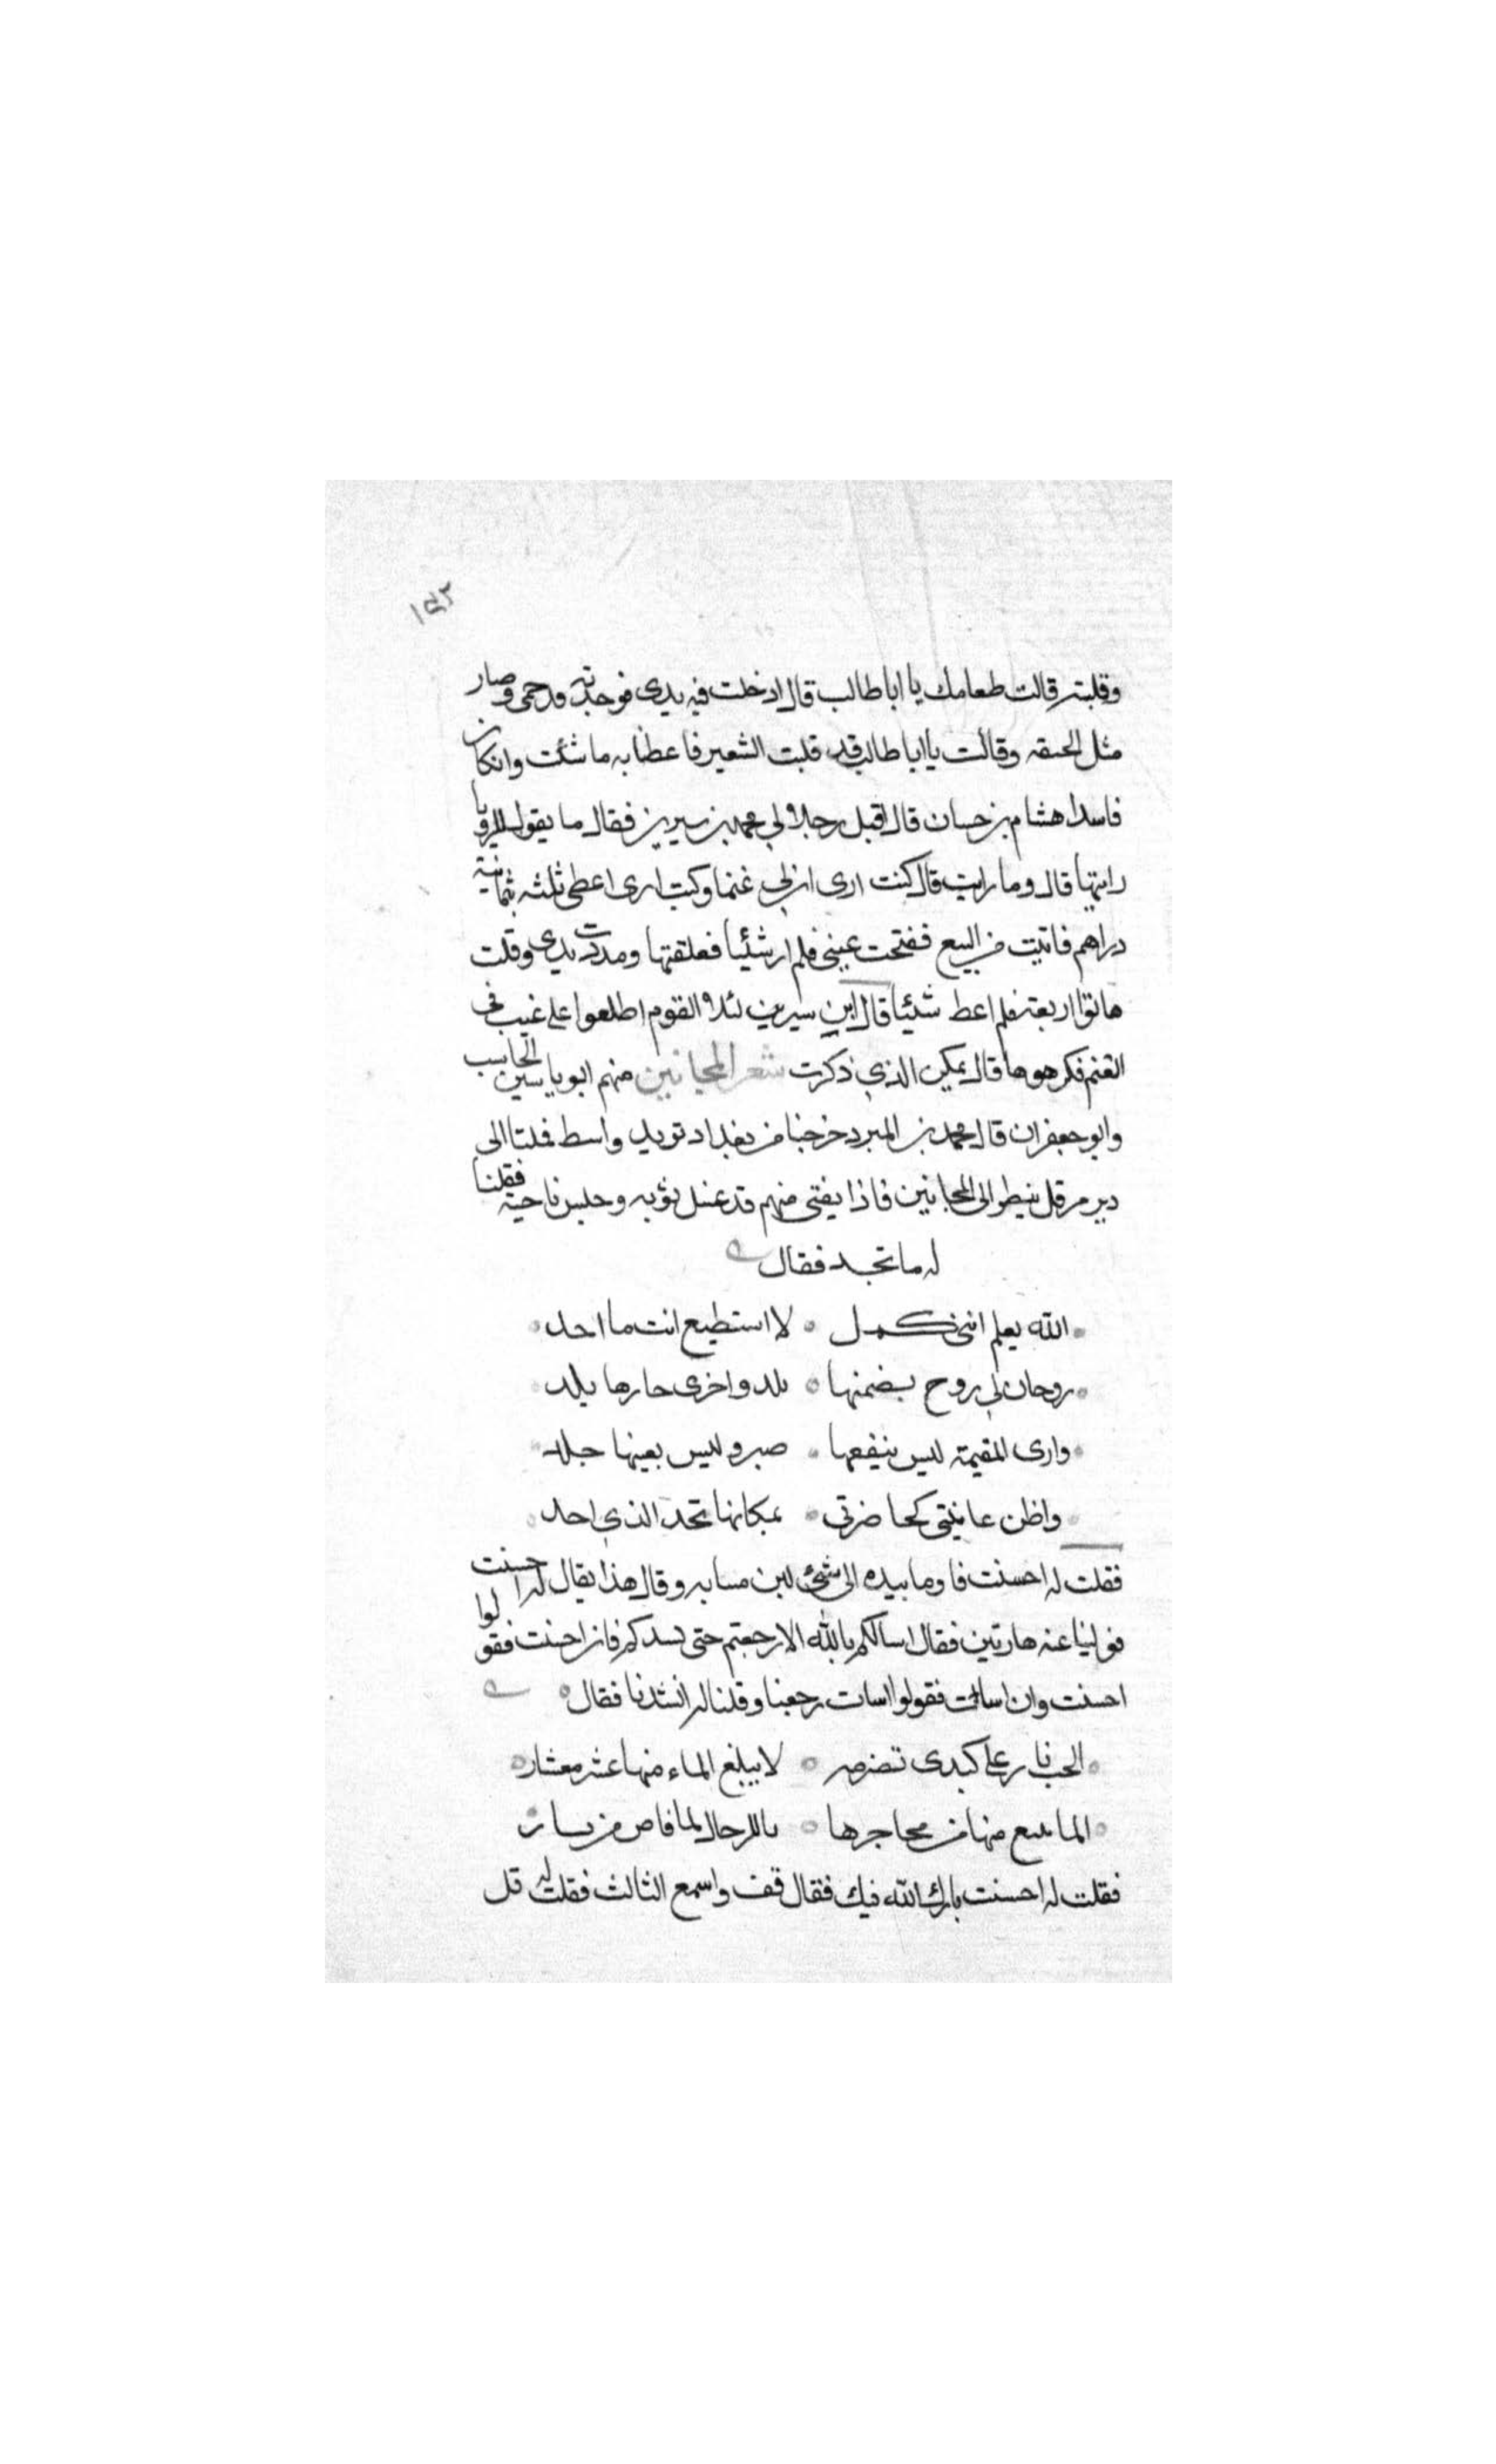 ١٥٢
وقلبته قالت طعامك يا ابا طالب قال ادخلت فيه يدى فوجدته قد حمى وصار
مثل وقالت يا ابا طالب قد قلبت الشعير فاعطنا به ما شئت وان كان
فاسدا هشام بن حسان قال اقبل رجلا لي محمد بن سيرين فقال ما يقول للرويا
رايتها قال وما رايت قال كنت ارى ان لي غنما وكنت ارى اعطى ثلثه ثمانية
دراهم فابيت من البيع ففتحت عينى فلم ار شئيا فعلقتها ومددت يدى وقلت
هاتوا اربعة فلم اعط شئيا قال ابن سيرين لئلا القوم اطلعوا على غيب فى
الغنم فكرهوها قال يمكن الذي ذكرت شعر المجانين منهم ابو ياسين الحاسب
وابو جعفران قال محمد بن المبرد خرجنا من بغداد نريد واسط فملنا الى
دير مرقل ننظر الى المجانين فاذا بفتى منهم قد غسل ثوبه وجلس ناحية فقلنا
له ما تجد فقال
الله يعلم اننى كمد ∘ لا استطيع انت ما اجد
روحان لي روح يضمنها ∘ بلد واخرى حازها بلد
وارى المقيمة ليس ينفعها ∘ صبر وليس بعينها جلد
واظن غايبتى كحاضرتى ∘ بمكانها تجد الذي اجد
فقلت له احسنت فاوما بيده الى شئ وقال هذا يقال له احسنت
فولينا عنه هاربين فقال اسالكم بالله الا رجعتم حتى فان احسنت فقولوا
احسنت وان اسات فقولوا اسات رجعنا وقلنا له انشدنا فقال
الحب نار على كبدى تضرمه ∘ لا يبلغ الماء منها عشر معشار
الما ينبع منها من محاجرها ∘ يا للرجال لما فاض من نار
فقلت له احسنت بارك الله فيك فقال قف واسمع الثالث فقلت له قل